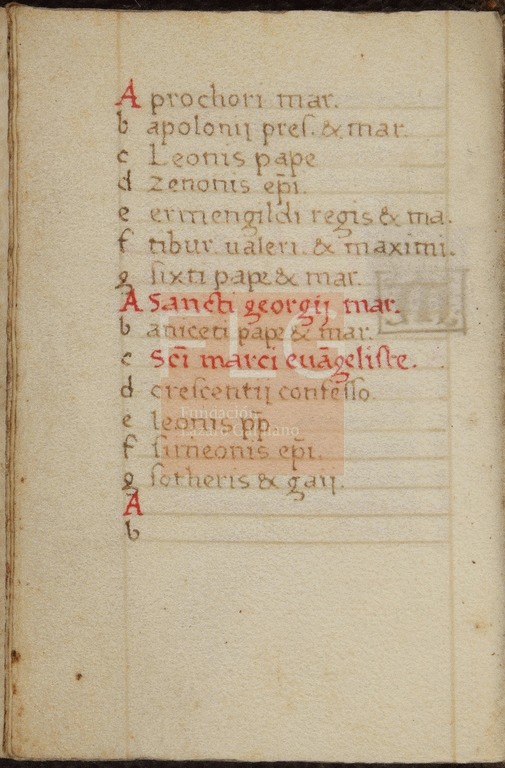 A prochori mar.
b apolonij pres. & mar.
c Leonis pape
d zenonis ep̄i.
e ermengildi regis & ma.
f tibur. ualeri. & maximi.
g sixti pape & mar.
A Sancti georgij mar.
b aniceti pape & mar.
c Sc̄i marci euāgeliste.
d crescentij confesso.
e leonis pp.
f simeonis ep̄i.
g sotheris & gaij.
A
b
FLG
Fundación
Lázaro Galdiano